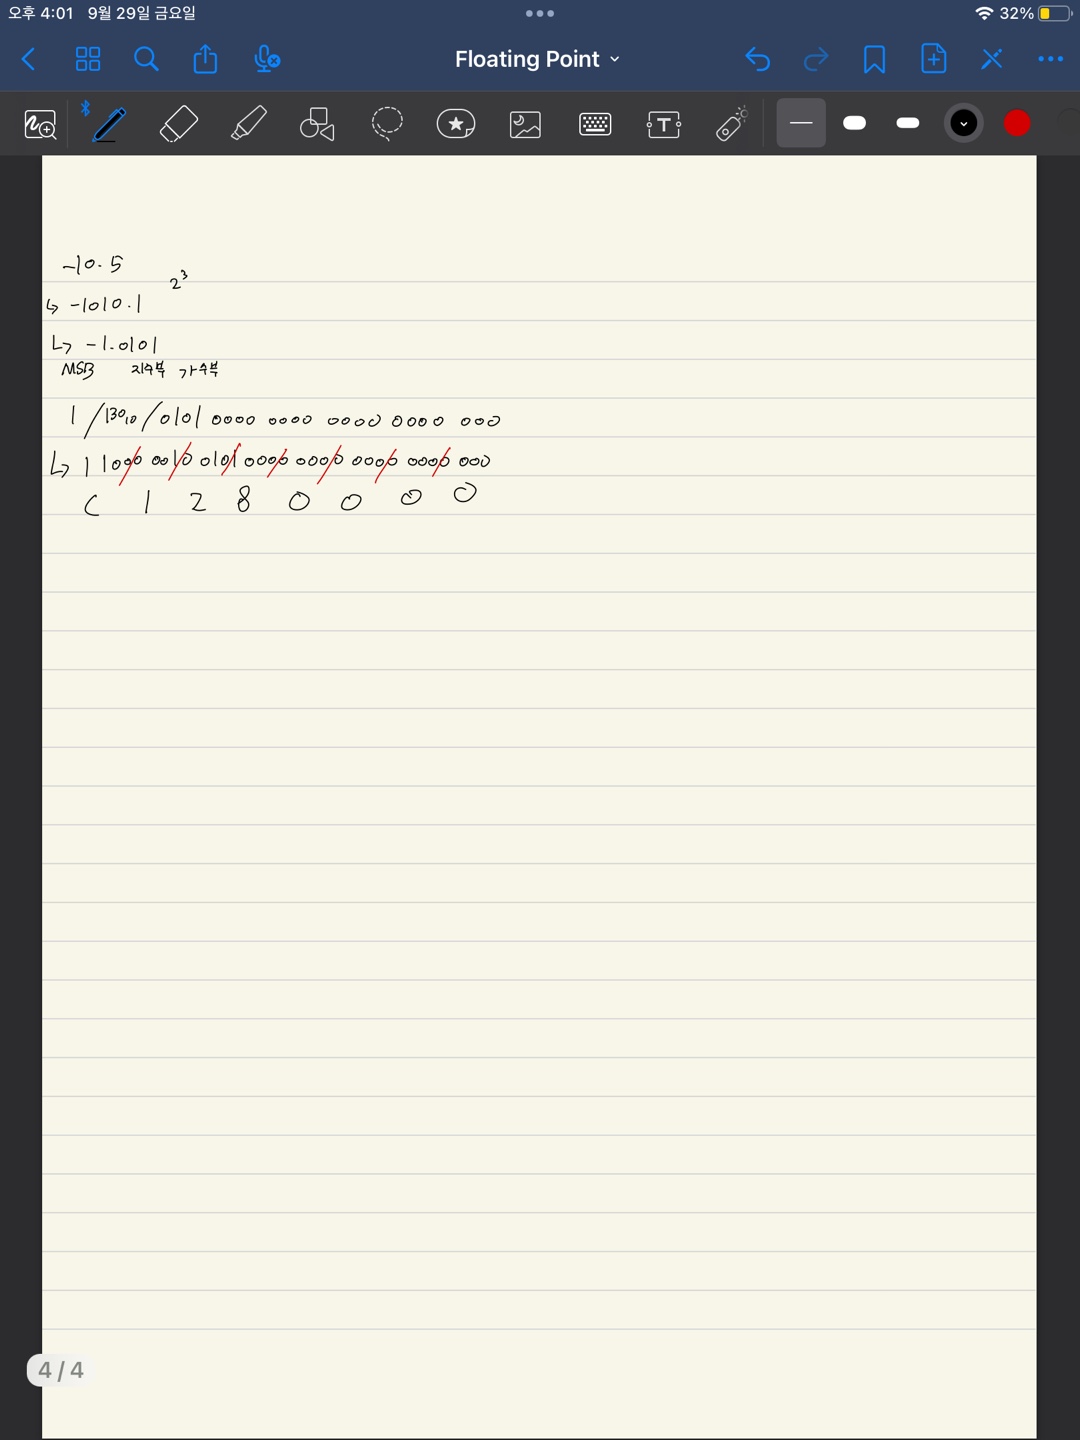 오후 4:01 9월 29일 금요일 32%
Floating Point
T
-10.5
2³
↳ -1010.1
↳ -1.0101
MSB 지수부 가수부
1 / 130₁₀ / 0101 0000 0000 0000 0000 000
↳ 1 1000 0010 0101 0000 0000 0000 0000 000
C 1 2 8 0 0 0 0
4 / 4